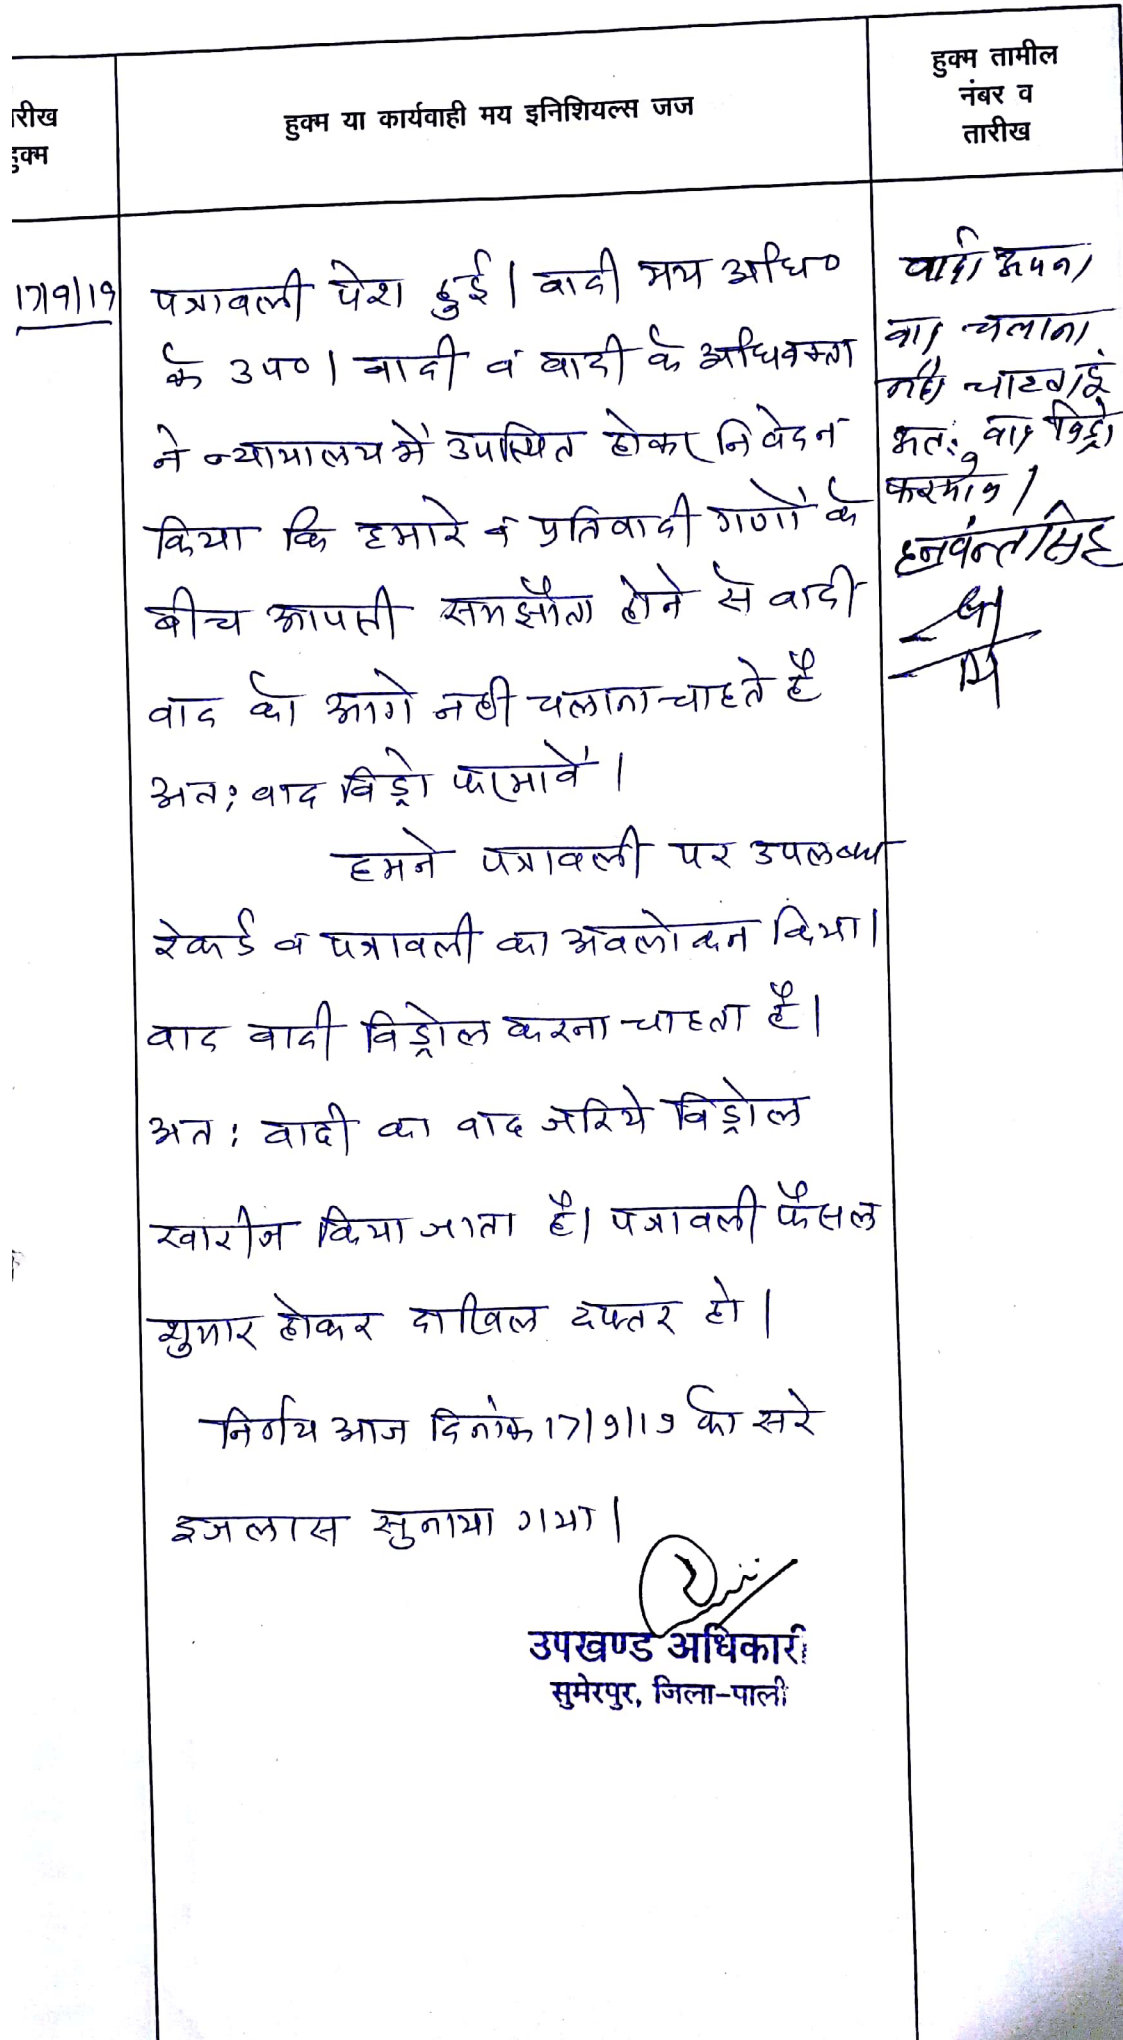 तारीख
हुक्म
हुक्म या कार्यवाही मय इनिशियल्स जज
हुक्म तामील
नंबर व
तारीख
17/9/19
पत्रावली पेश हुई। वादी मय अधि०
के उप०। वादी व वादी के अधिवक्ता
ने न्यायालय में उपस्थित होकर निवेदन
किया कि हमारे व प्रतिवादी गणों के
बीच आपसी समझौता होने से वादी
वाद को आगे नही चलाना चाहते है
अत: वाद विड्रो फरमावें।
हमने पत्रावली पर उपलब्ध
रेकर्ड व पत्रावली का अवलोकन किया।
वाद वादी विड्रोल करना चाहता है।
अत: वादी का वाद जरिये विड्रोल
खारीज किया जाता है। पत्रावली फैसल
शुमार होकर दाखिल दफ्तर हो।
निर्णय आज दिनांक 17/9/19 को सरे
इजलास सुनाया गया।
उपखण्ड अधिकारी
सुमेरपुर, जिला-पाली
वादी अपना
वाद चलाना
नही चाहता है
अत: वाद विड्रो
फरमावे।
हनवंन्तसिंह